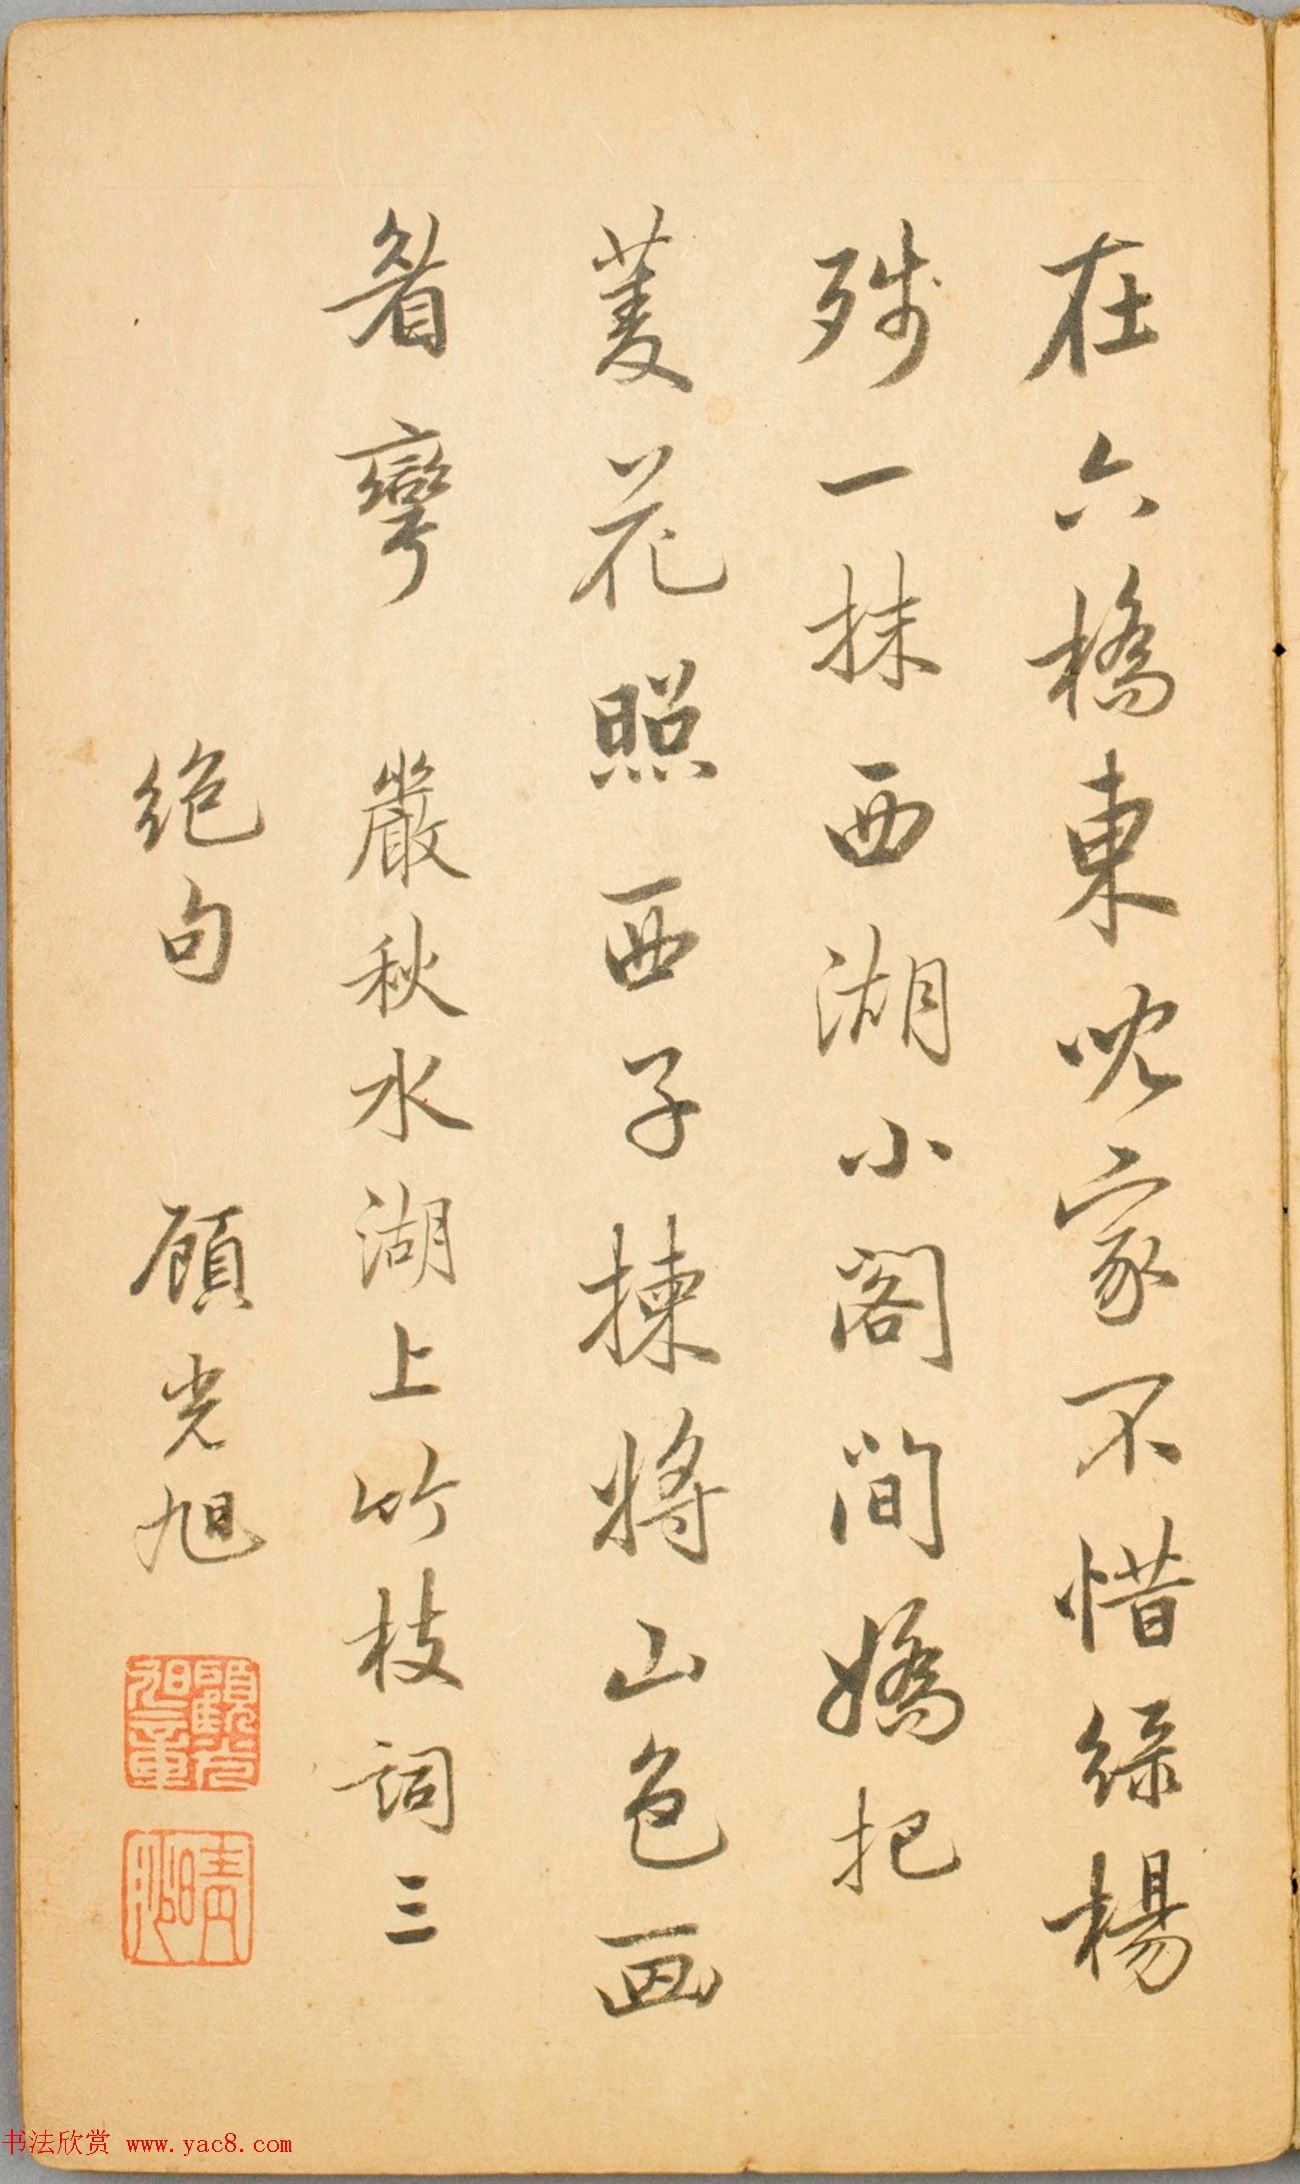 在六橋東家不惜綠楊
殘一抹西湖小閣間嬌把
菱花照西子揀將山色画
眉彎 嚴秋水湖上竹枝詞三
絕句 顧光旭
晴沙
书法欣赏 www.yac8.com